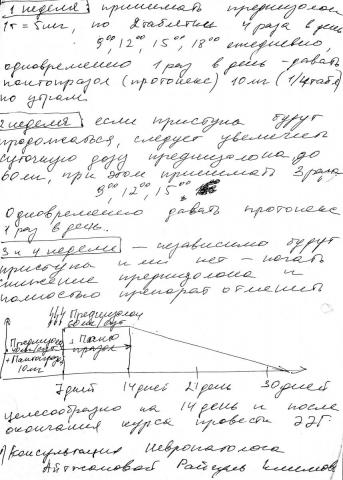 1 неделя принимать преднизолон
1т = 5мг, по 2 таблетки 4 раза в день
9⁰⁰, 12⁰⁰, 15⁰⁰, 18⁰⁰ ежедневно,
одновременно 1 раз в день давать
пантопразол (протонекс) 10мг (1/4 табл)
по утрам.
2 неделя если приступы будут
продолжаться, следует увеличить
суточную дозу преднизолона до
60мг, при этом принимать 3 раза
9⁰⁰, 12⁰⁰, 15⁰⁰
Одновременно давать протонекс
1 раз в день.
3 и 4 недели – независимо будут
приступы или нет – начать
снижение преднизолона и
полностью препарат отменить
Преднизолон
60мг/сут
+ Панто
празол
+ Пантопразол
10мг
7 дней 14 дней 21 день 30 дней
целесообразно на 14 день и после
окончания курса провести ЭЭГ
Консультация Невропатолога